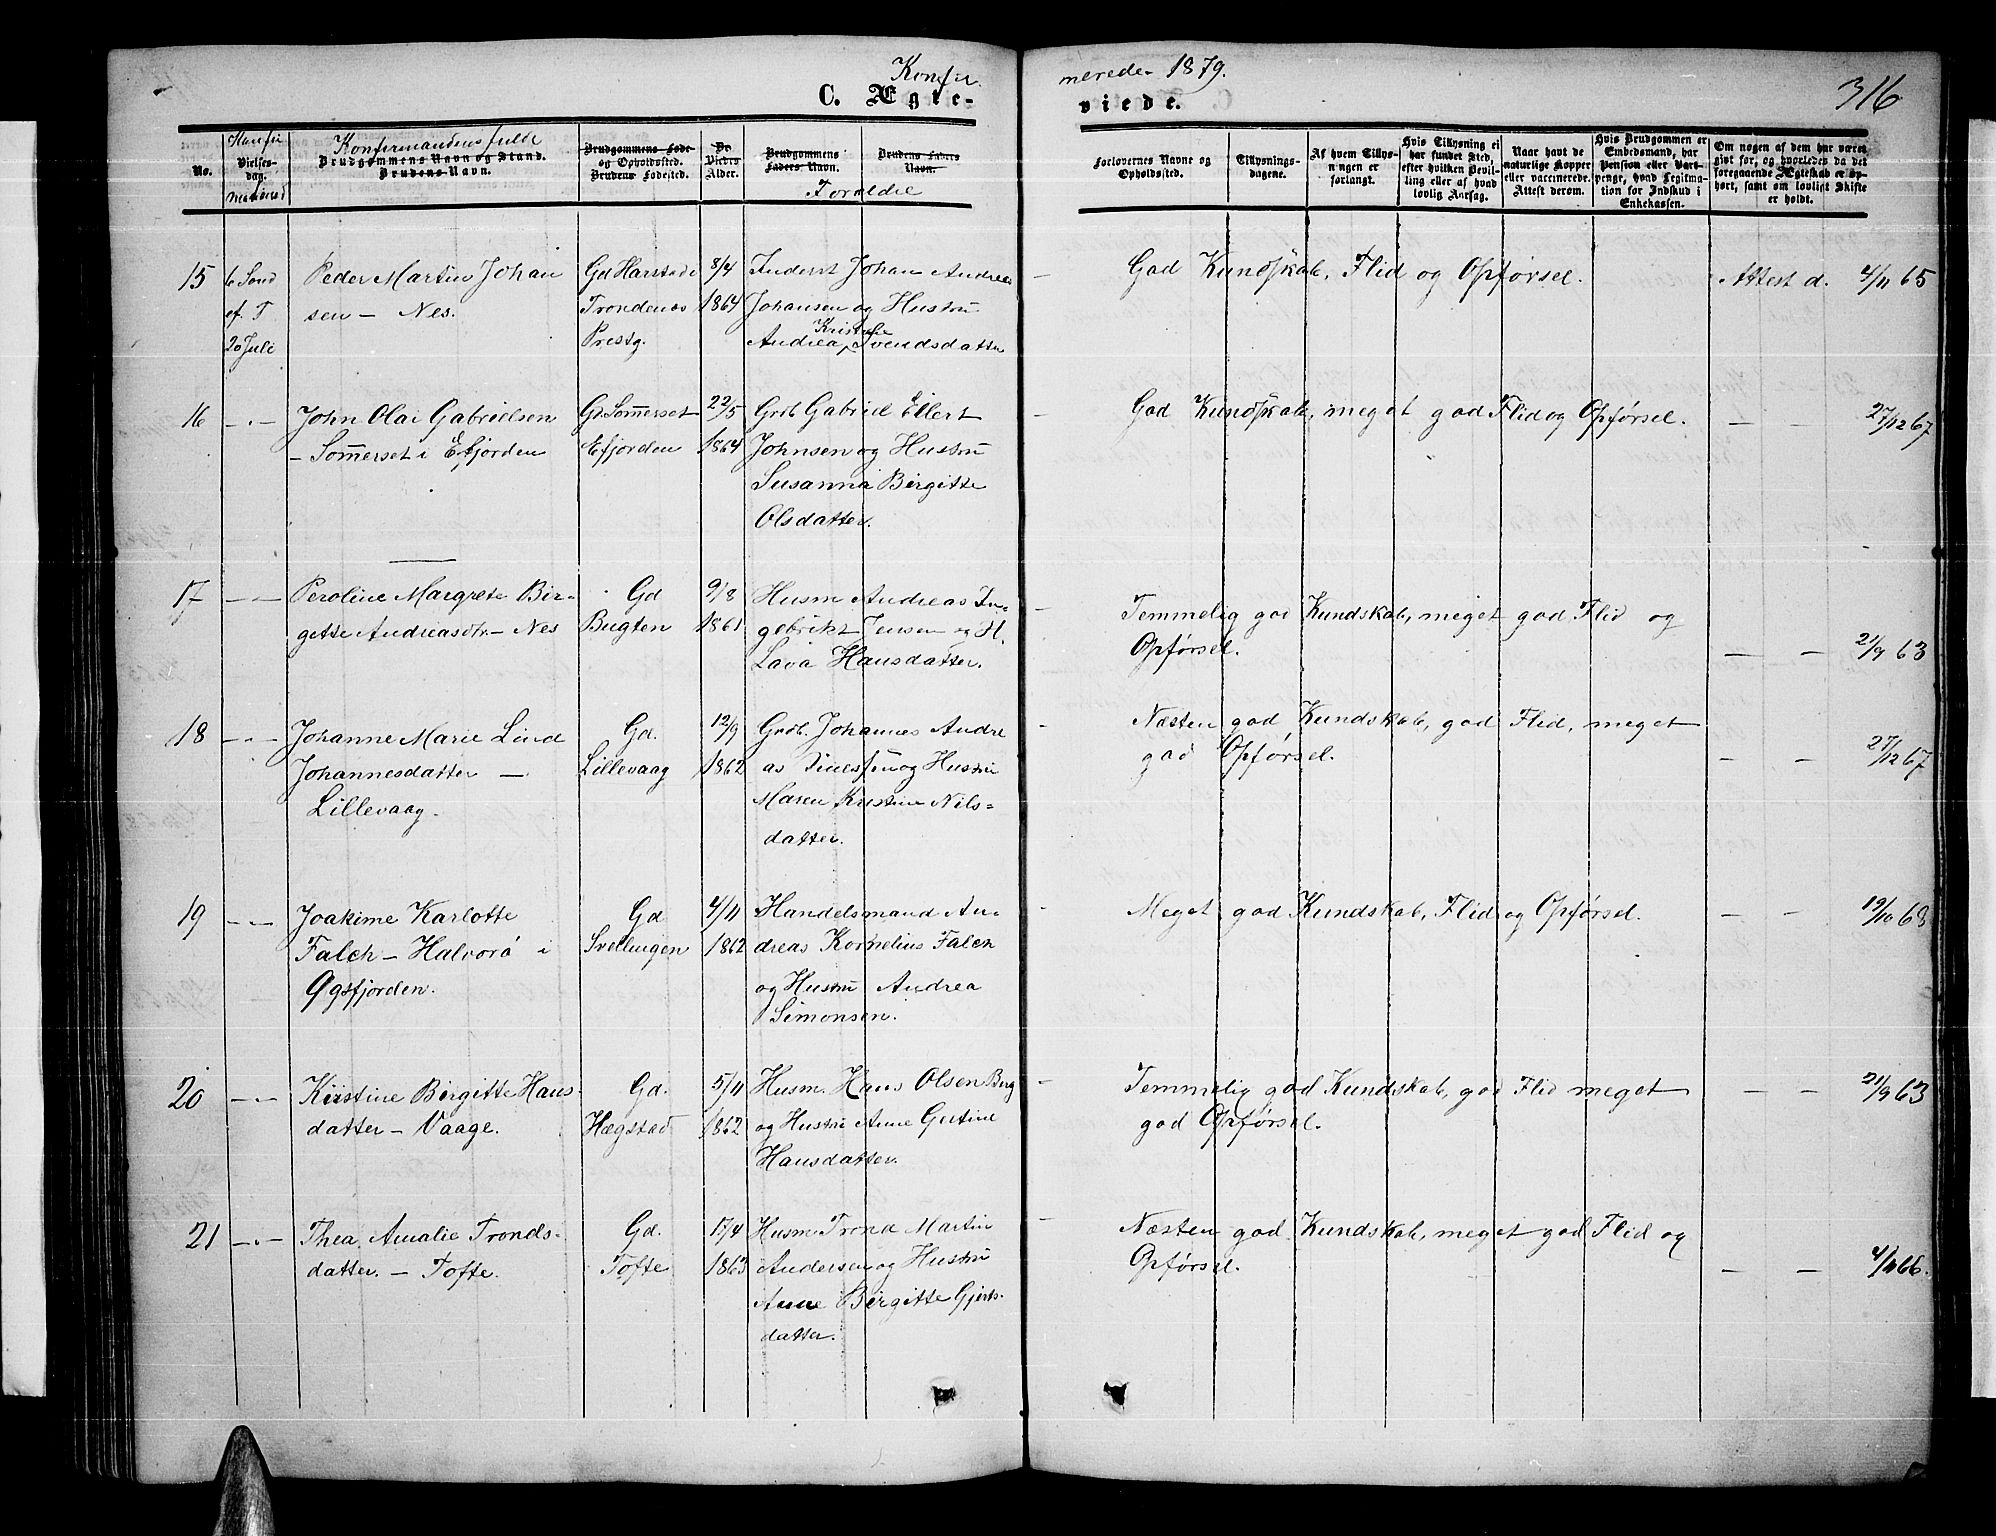 Konfir
merede 1879.
316
C. Ægte-
viede.
No.
Konfir
Vielses-
dag.
mations
Konfirmandens fulde
Brudgommens Navn og Stand.
Brudens Navn.
Brudgommens Føde-
og Opholdssted.
Brudens Fødested.
De
Viedes
Alder.
Brudgommens
Faders Navn.
Brudens Faders
Navn.
Forældre
Forlovernes Navne og
Opholdssted.
Tillysnings-
dagene.
Af hvem Tillys-
ningen er
forlangt.
Hvis Tillysning ei
har fundet Sted,
efter hvilken Bevil-
ling eller af hvad
lovlig Aarsag.
Naar havt de
naturlige Kopper
eller vaccinerede.
Attest derom.
Hvis Brudgommen er
Embedsmand, har
Pension eller Vart-
penge, hvad Legitima-
tion for Indskud i
Enkekassen.
Om nogen af dem har været
gift før, og hvorledes da det
foregaaende Ægteskab er op-
hørt, samt om lovligt Skifte
er holdt.
15
6 Sønd
ef. T
20 Juli
Peder Martin Johan
sen – Nes.
Gd Harstad
Trondenæs
Prestg.
8/4
1864
Inderst Johan Andreas
Johansen og Hustru
Kristine
Andrea Svendsdatter
God Kundskab, Flid og Opførsel.
Attest d. 4/11 65
16
John Olai Gabrielsen
– Sommerset i Efjorden
Gd Sommerset
Efjorden
22/5
1864
Grdb Gabriel Ellert
Johnsen og Hustru
Susanna Birgitte
Olsdatter.
God Kundskab, meget god Flid og Opførsel.
– – 27/12 67
17
Peroline Margrete Bir-
gitte Andreasdtr – Nes
Gd
Bugten
9/8
1861
Husm Andreas In-
gebrikt Jensen og H.
Lava Hansdatter.
Temmelig god Kundskab, meget god Flid og
Opførsel.
– – 21/9 63
18
Johanne Marie Lind
Johannesdatter –
Lillevaag.
Gd.
Lillevaag
12/9
1862
Grdb. Johannes Andre
as og Hustru
Maren Kristine Nils-
datter.
Næsten god Kundskab, god Flid, meget
god Opførsel.
– – 27/12 67
19
Joakime Karlotte
Falch – Halvorø i
Øgsfjorden.
Gd
Svellingen
4/11
1862
Handelsmand An-
dreas Kornelius Falch
og Hustru Andrea
Simonsen.
Meget god Kundskab, Flid og Opførsel.
– – 19/10 63
20
Kirstine Birgitte Hans-
datter – Vaage.
Gd.
Hægstad
5/11
1862
Husm. Hans Olsen Berg
og Hustru Anne Gurtine
Hansdatter.
Temmelig god Kundskab, god Flid meget
god Opførsel.
– – 21/9 63
21
Thea Amalie Tronds-
datter. – Tofte.
Gd.
Tofte
17/4
1863
Husm Trond Martin
Andersen og Hustru
Anne Birgitte Gjerts-
datter.
Næsten god Kundskab, meget god Flid og
Opførsel.
– – 4/11 66.